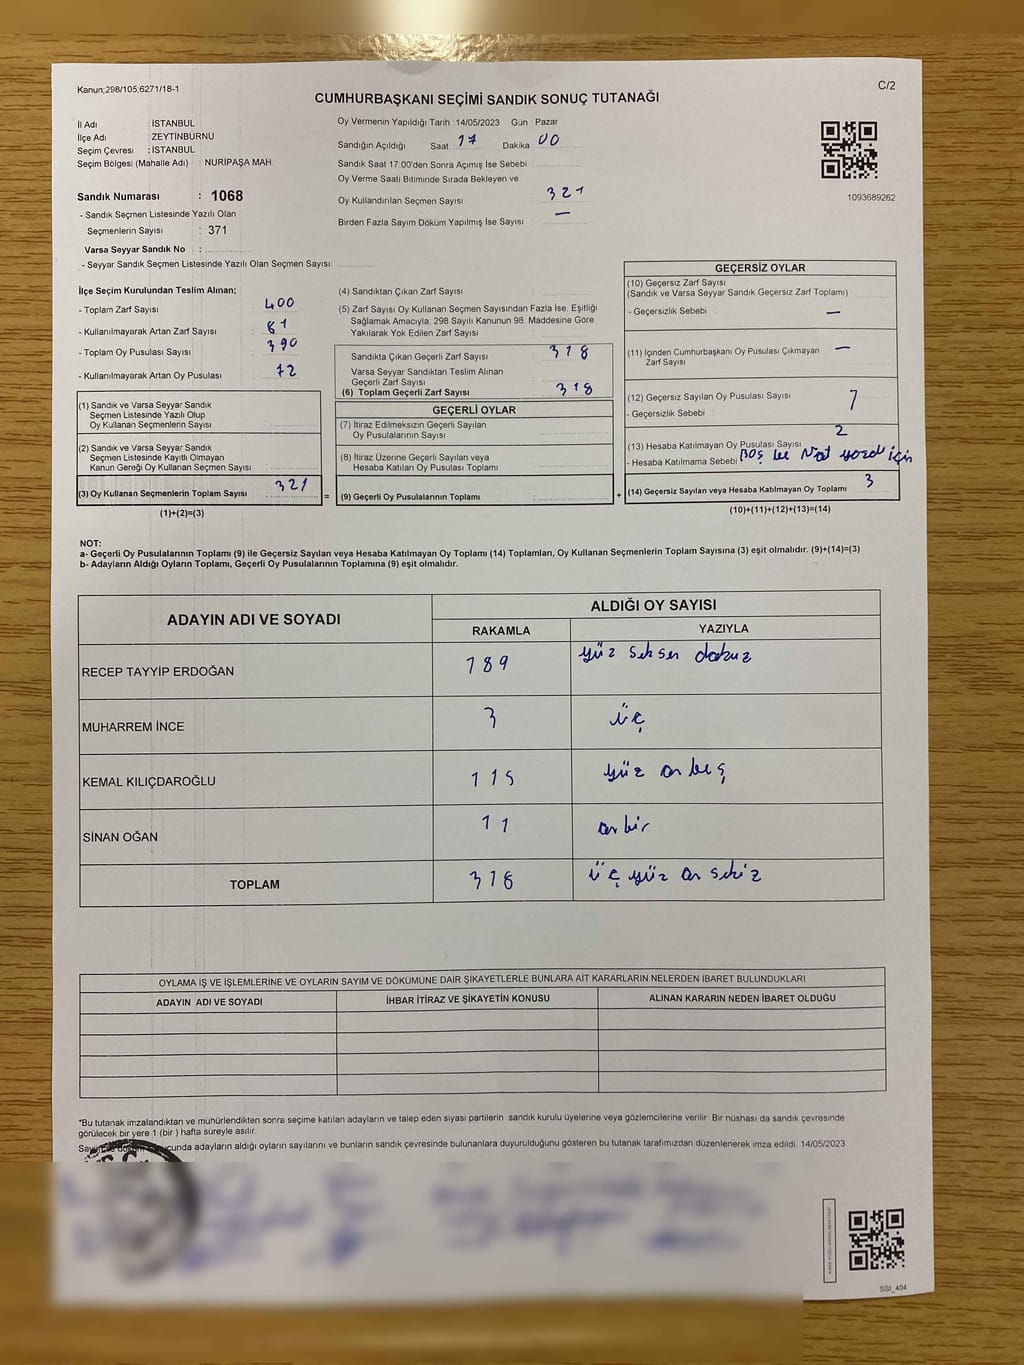 Kanun;298/105;6271/18-1
C/2
CUMHURBAŞKANI SEÇİMİ SANDIK SONUÇ TUTANAĞI
İl Adı : İSTANBUL
İlçe Adı : ZEYTİNBURNU
Seçim Çevresi : İSTANBUL
Seçim Bölgesi (Mahalle Adı) : NURİPAŞA MAH
Sandık Numarası : 1068
- Sandık Seçmen Listesinde Yazılı Olan
Seçmenlerin Sayısı : 371
Varsa Seyyar Sandık No :
- Seyyar Sandık Seçmen Listesinde Yazılı Olan Seçmen Sayısı:
Oy Vermenin Yapıldığı Tarih 14/05/2023 Gün Pazar
Sandığın Açıldığı Saat 17 Dakika 00
Sandık Saat 17:00'den Sonra Açımış İse Sebebi
Oy Verme Saati Bitiminde Sırada Bekleyen ve
Oy Kullandırılan Seçmen Sayısı 321
Birden Fazla Sayım Döküm Yapılmış İse Sayısı : —
1093689262
İlçe Seçim Kurulundan Teslim Alınan;
- Toplam Zarf Sayısı : 400
- Kullanılmayarak Artan Zarf Sayısı : 81
- Toplam Oy Pusulası Sayısı : 390
- Kullanılmayarak Artan Oy Pusulası : 72
(1) Sandık ve Varsa Seyyar Sandık
Seçmen Listesinde Yazılı Olup
Oy Kullanan Seçmenlerin Sayısı :
(2) Sandık ve Varsa Seyyar Sandık
Seçmen Listesinde Kayıtlı Olmayan
Kanun Gereği Oy Kullanan Seçmen Sayısı :
(3) Oy Kullanan Seçmenlerin Toplam Sayısı : 321
(1)+(2)=(3)
=
(4) Sandıktan Çıkan Zarf Sayısı :
(5) Zarf Sayısı Oy Kullanan Seçmen Sayısından Fazla İse, Eşitliği
Sağlamak Amacıyla; 298 Sayılı Kanunun 98. Maddesine Göre
Yakılarak Yok Edilen Zarf Sayısı :
Sandıkta Çıkan Geçerli Zarf Sayısı 318
Varsa Seyyar Sandıktan Teslim Alınan
Geçerli Zarf Sayısı
(6) Toplam Geçerli Zarf Sayısı : 318
GEÇERLİ OYLAR
(7) İtiraz Edilmeksizin Geçerli Sayılan
Oy Pusulalarının Sayısı :
(8) İtiraz Üzerine Geçerli Sayılan veya
Hesaba Katılan Oy Pusulası Toplamı :
(9) Geçerli Oy Pusulalarının Toplamı :
+
GEÇERSİZ OYLAR
(10) Geçersiz Zarf Sayısı
(Sandık ve Varsa Seyyar Sandık Geçersiz Zarf Toplamı)
- Geçersizlik Sebebi : —
(11) İçinden Cumhurbaşkanı Oy Pusulası Çıkmayan
Zarf Sayısı —
(12) Geçersiz Sayılan Oy Pusulası Sayısı 1
- Geçersizlik Sebebi
(13) Hesaba Katılmayan Oy Pusulası Sayısı 2
- Hesaba Katılmama Sebebi Boş ve Not yazdı için
(14) Geçersiz Sayılan veya Hesaba Katılmayan Oy Toplamı 3
(10)+(11)+(12)+(13)=(14)
NOT:
a- Geçerli Oy Pusulalarının Toplamı (9) ile Geçersiz Sayılan veya Hesaba Katılmayan Oy Toplamı (14) Toplamları, Oy Kullanan Seçmenlerin Toplam Sayısına (3) eşit olmalıdır. (9)+(14)=(3)
b- Adayların Aldığı Oyların Toplamı, Geçerli Oy Pusulalarının Toplamına (9) eşit olmalıdır.
ADAYIN ADI VE SOYADI
ALDIĞI OY SAYISI
RAKAMLA YAZIYLA
RECEP TAYYİP ERDOĞAN 189 yüz seksen dokuz
MUHARREM İNCE 3 üç
KEMAL KILIÇDAROĞLU 115 yüz on beş
SİNAN OĞAN 11 on bir
TOPLAM 318 üç yüz on sekiz
OYLAMA İŞ VE İŞLEMLERİNE VE OYLARIN SAYIM VE DÖKÜMÜNE DAİR ŞİKAYETLERLE BUNLARA AİT KARARLARIN NELERDEN İBARET BULUNDUKLARI
ADAYIN ADI VE SOYADI İHBAR İTİRAZ VE ŞİKAYETİN KONUSU ALINAN KARARIN NEDEN İBARET OLDUĞU
*Bu tutanak imzalandıktan ve mühürlendikten sonra seçime katılan adayların ve talep eden siyasi partilerin sandık kurulu üyelerine veya gözlemcilerine verilir. Bir nüshası da sandık çevresinde
görülecek bir yere 1 (bir ) hafta süreyle asılır.
adayların aldığı oyların sayılarını ve bunların sandık çevresinde bulunanlara duyurulduğunu gösteren bu tutanak tarafımızdan düzenlenerek imza edildi. 14/05/2023
SSI_404